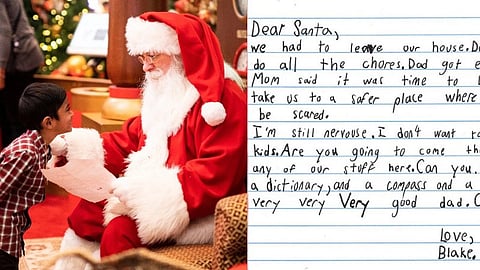 Dear Santa,
we had to leave our house.
do all the chores. Dad got
Mom said it was time to
take us to a safer place where
be scared.
I'm still nervouse. I don't want
kids. Are you going to come
any of our stuff here. Can you.
a dictionary, and a compass and a
very very Very good dad.
Love,
Blake.